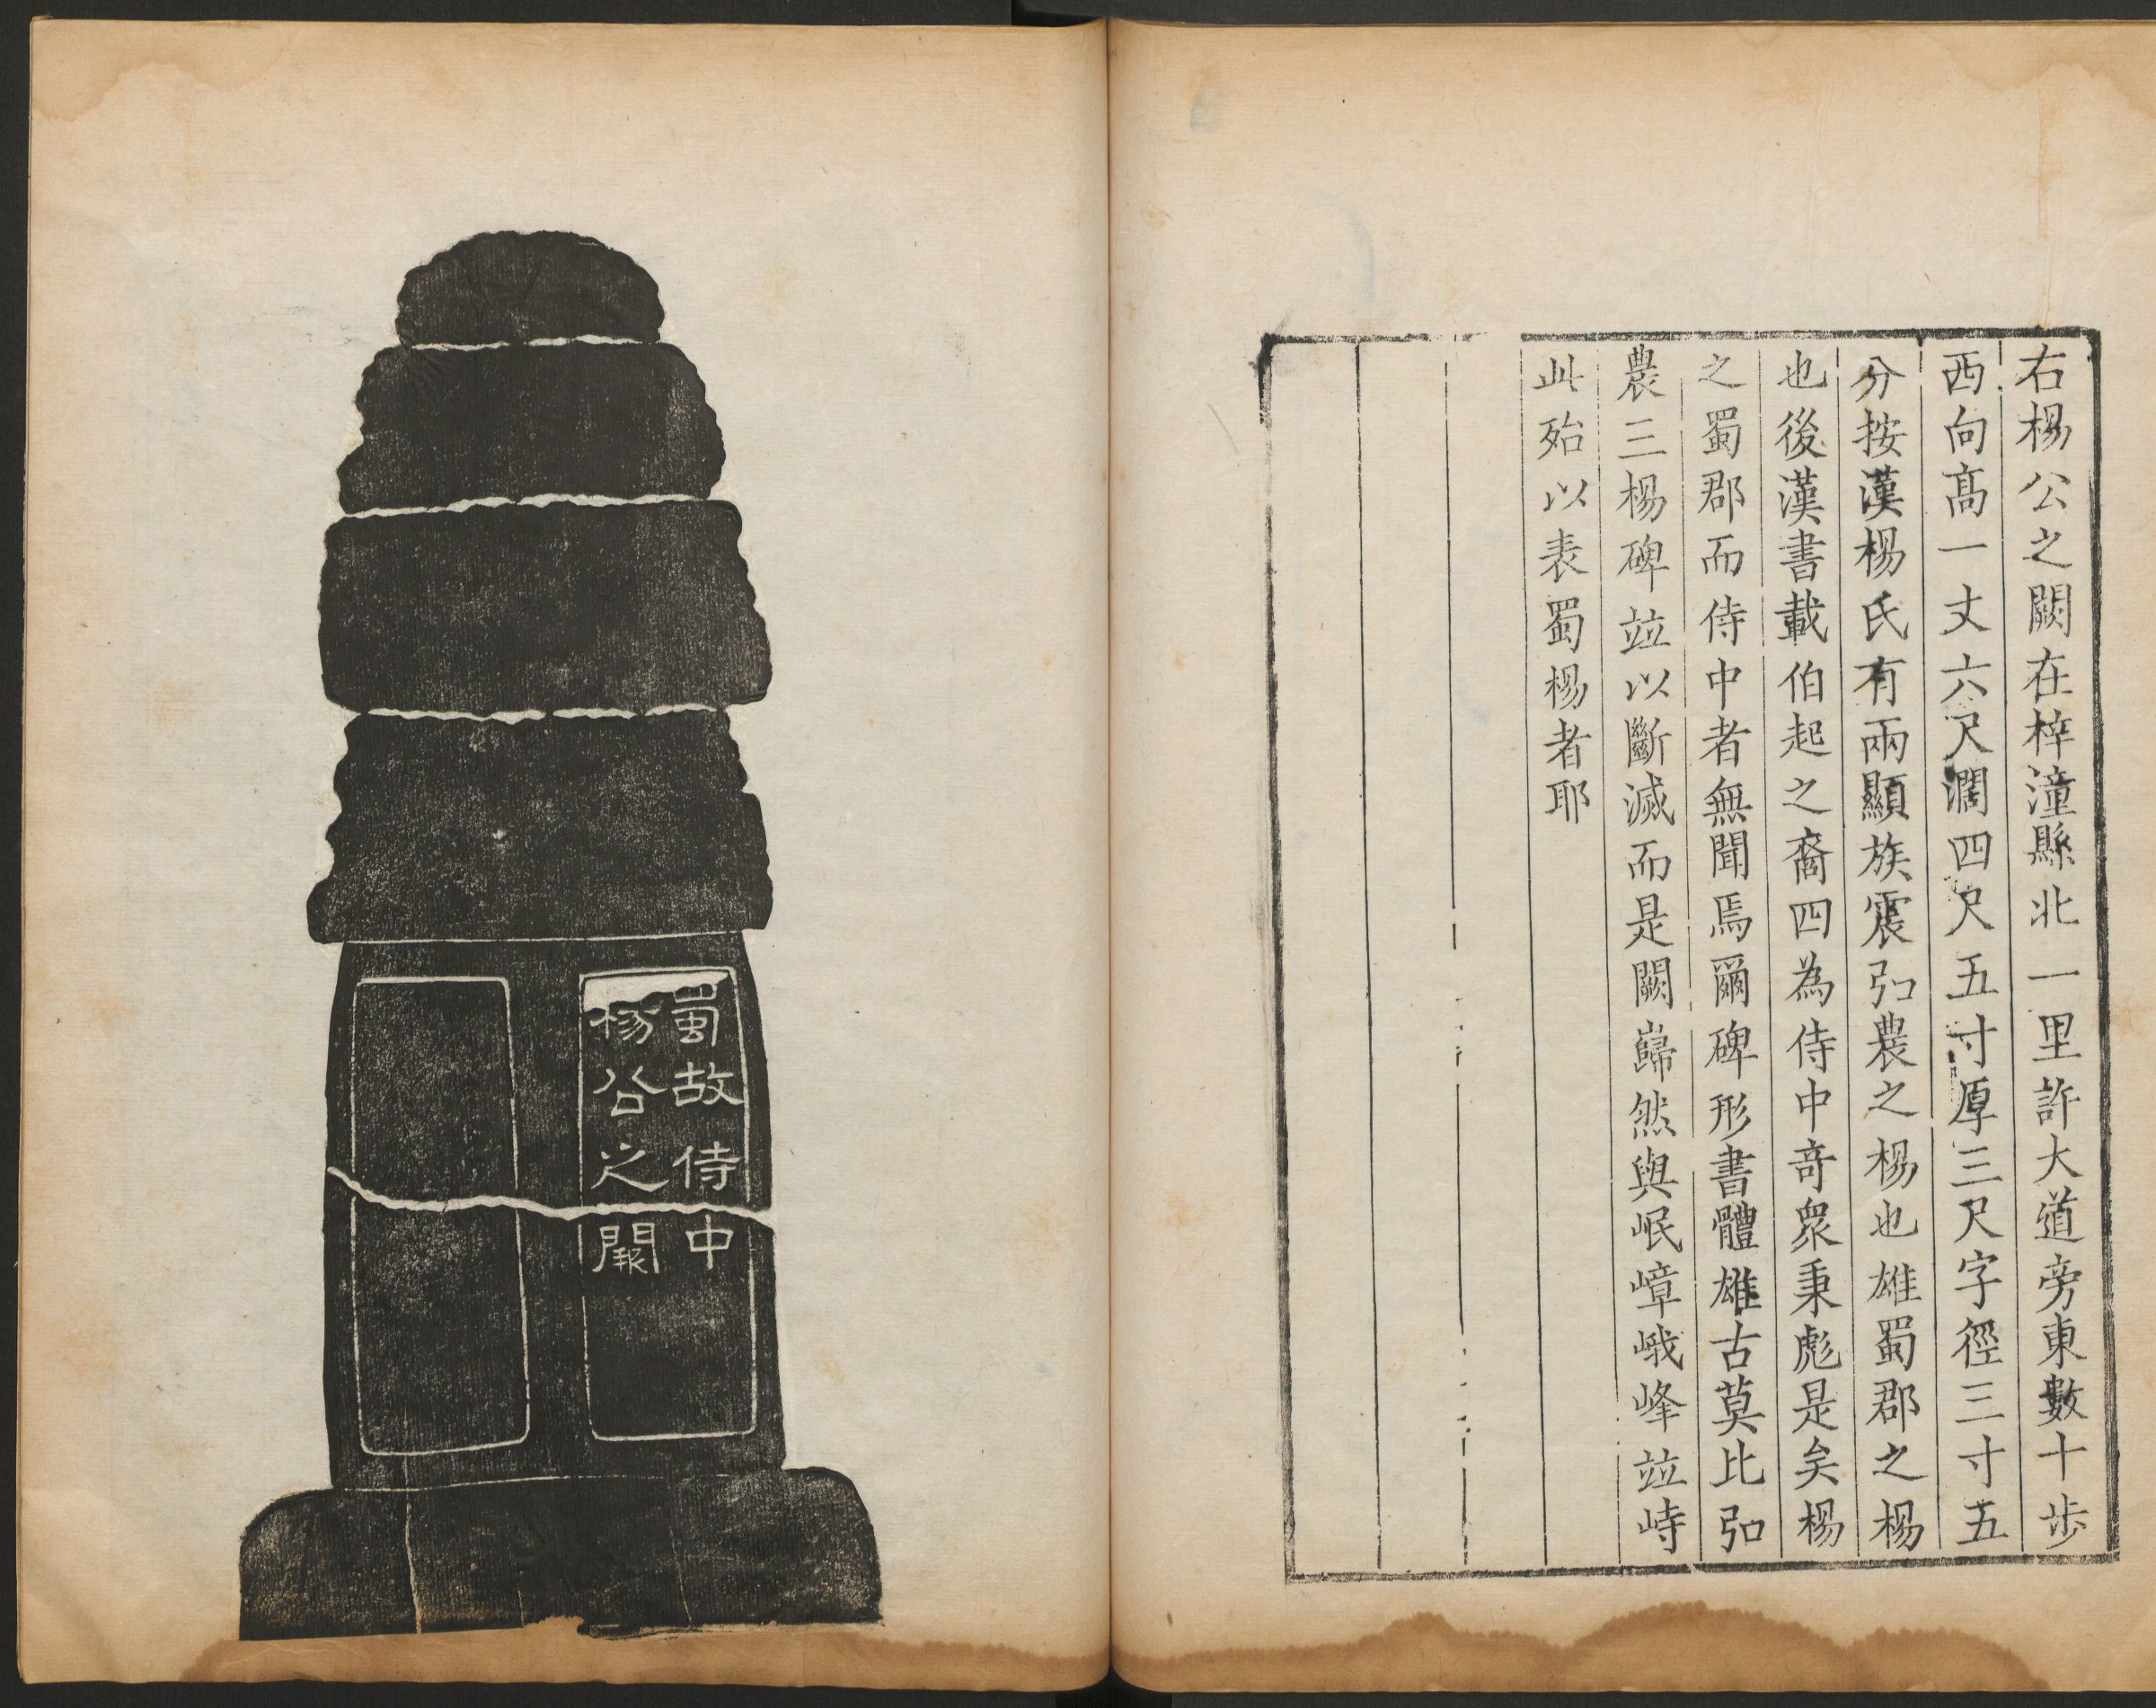 右楊公之闕在梓潼縣北一里許大道旁東數十步
西向高一丈六尺濶四尺五寸厚三尺字徑三寸五
分按漢楊氏有兩顯族震弘農之楊也雄蜀郡之楊
也後漢書載伯起之裔四為侍中竒衆秉彪是矣楊
之蜀郡而侍中者無聞焉爾碑形書體雄古莫比弘
農三楊碑竝以斷滅而是闕巋然與岷嶂峨峰竝峙
此殆以表蜀楊者耶
蜀故侍中
楊公之闕